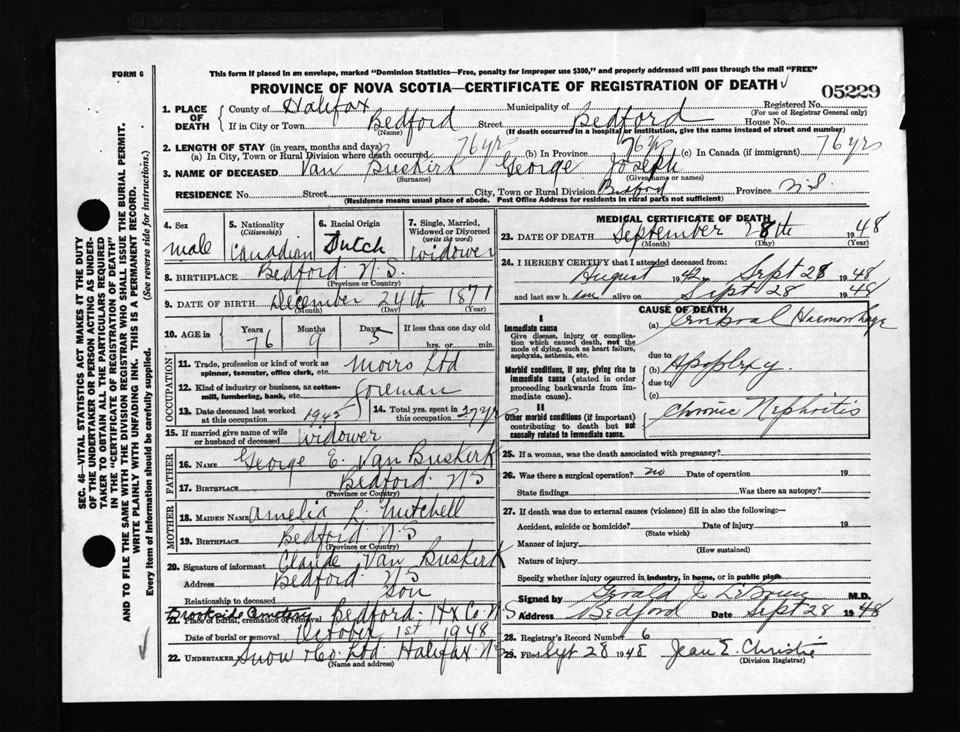 FORM 6
This form if placed in an envelope, marked "Dominion Statistics—Free, penalty for improper use $300," and properly addressed will pass through the mail "FREE"
PROVINCE OF NOVA SCOTIA—CERTIFICATE OF REGISTRATION OF DEATH
05229
1. PLACE OF DEATH
County of Halifax Municipality of Registered No.
(For use of Registrar General only)
If in City or Town Bedford Street Bedford House No.
(Name) (If death occurred in a hospital or institution, give the name instead of street and number)
2. LENGTH OF STAY (in years, months and days)
(a) In City, Town or Rural Division where death occurred 76 yrs (b) In Province 76 yrs (c) In Canada (if immigrant) 76 yrs
3. NAME OF DECEASED Van Buskirk George Joseph
(Surname) (Given name or names)
RESIDENCE No. Street City, Town or Rural Division Bedford Province N.S.
(Residence means usual place of abode. Post Office Address for residents in rural parts not sufficient)
4. Sex
male
5. Nationality
(Citizenship)
Canadian
6. Racial Origin
Dutch
7. Single, Married, Widowed or Divorced
(write the word)
widower
8. BIRTHPLACE Bedford N.S.
(Province or Country)
9. DATE OF BIRTH December 24th 1871
(Month) (Day) (Year)
10. AGE in Years Months Days If less than one day old
76 9 5 hrs. or min.
OCCUPATION
11. Trade, profession or kind of work as spinner, teamster, office clerk, etc. Moirs Ltd
12. Kind of industry or business, as cotton-mill, lumbering, bank, etc. foreman
13. Date deceased last worked at this occupation 1942
14. Total yrs. spent in this occupation 27 yrs
15. If married give name of wife or husband of deceased widower
FATHER
16. NAME George E. Van Buskirk
17. BIRTHPLACE Bedford N S
(Province or Country)
MOTHER
18. MAIDEN NAME Amelia L. Mitchell
19. BIRTHPLACE Bedford N S
(Province or Country)
20. Signature of informant Claude Van Buskirk
Address Bedford N S
Relationship to deceased son
Brookside Cemetery
21. Place of burial, cremation or removal Bedford, Hx Co. N S
Date of burial or removal October 1st 1948
22. UNDERTAKER Snow & Co. Ltd Halifax N S
(Name and address)
MEDICAL CERTIFICATE OF DEATH
23. DATE OF DEATH September 28th 1948
(Month) (Day) (Year)
24. I HEREBY CERTIFY that I attended deceased from:
August 1942 Sept 28 1948
and last saw h alive on Sept 28 1948
CAUSE OF DEATH
I
Immediate cause
Give disease, injury or complication which caused death, not the mode of dying, such as heart failure, asphyxia, asthenia, etc.
(a) Cerebral Haemorrhage
due to
Morbid conditions, if any, giving rise to immediate cause (stated in order proceeding backwards from immediate cause).
(b) Apoplexy
due to
(c)
II
Other morbid conditions (if important) contributing to death but not causally related to immediate cause.
Chronic Nephritis
25. If a woman, was the death associated with pregnancy?
26. Was there a surgical operation? no Date of operation 19
State findings Was there an autopsy?
27. If death was due to external causes (violence) fill in also the following:—
Accident, suicide or homicide? Date of injury 19
(State which)
Manner of injury
(How sustained)
Nature of injury
Specify whether injury occurred in industry, in home, or in public place
Signed by Gerald J. M.D.
Address Bedford Date Sept 28 1948
28. Registrar's Record Number 6
29. Filed Sept 28 1948 Jean E. Christie
(Division Registrar)
SEC. 46—VITAL STATISTICS ACT MAKES IT THE DUTY
OF THE UNDERTAKER OR PERSON ACTING AS UNDER-
TAKER TO OBTAIN ALL THE PARTICULARS REQUIRED
IN THE "CERTIFICATE OF REGISTRATION OF DEATH"
AND TO FILE THE SAME WITH THE DIVISION REGISTRAR WHO SHALL ISSUE THE BURIAL PERMIT.
WRITE PLAINLY WITH UNFADING INK. THIS IS A PERMANENT RECORD.
Every item of information should be carefully supplied. (See reverse side for instructions.)